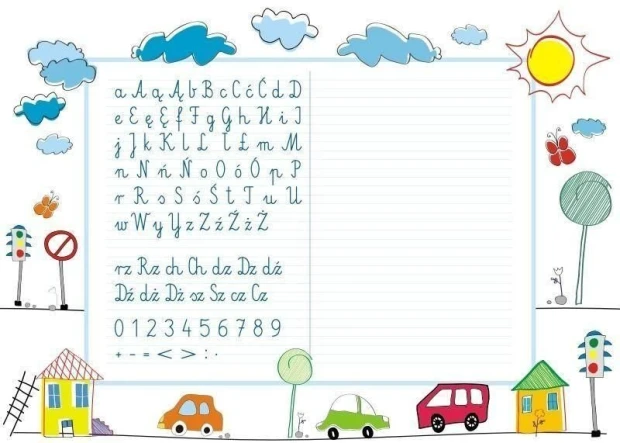 a A ą Ą b B c C ć Ć d D
e E ę Ę f F g G h H i I
j J k K l L ł Ł m M
n N ń Ń o O ó Ó p P
r R s S ś Ś t T u U
w W y Y z Z ź Ź ż Ż
rz Rz ch Ch dz Dz dź
Dź dż Dż sz Sz cz Cz
0 1 2 3 4 5 6 7 8 9
+ - = < > : ·